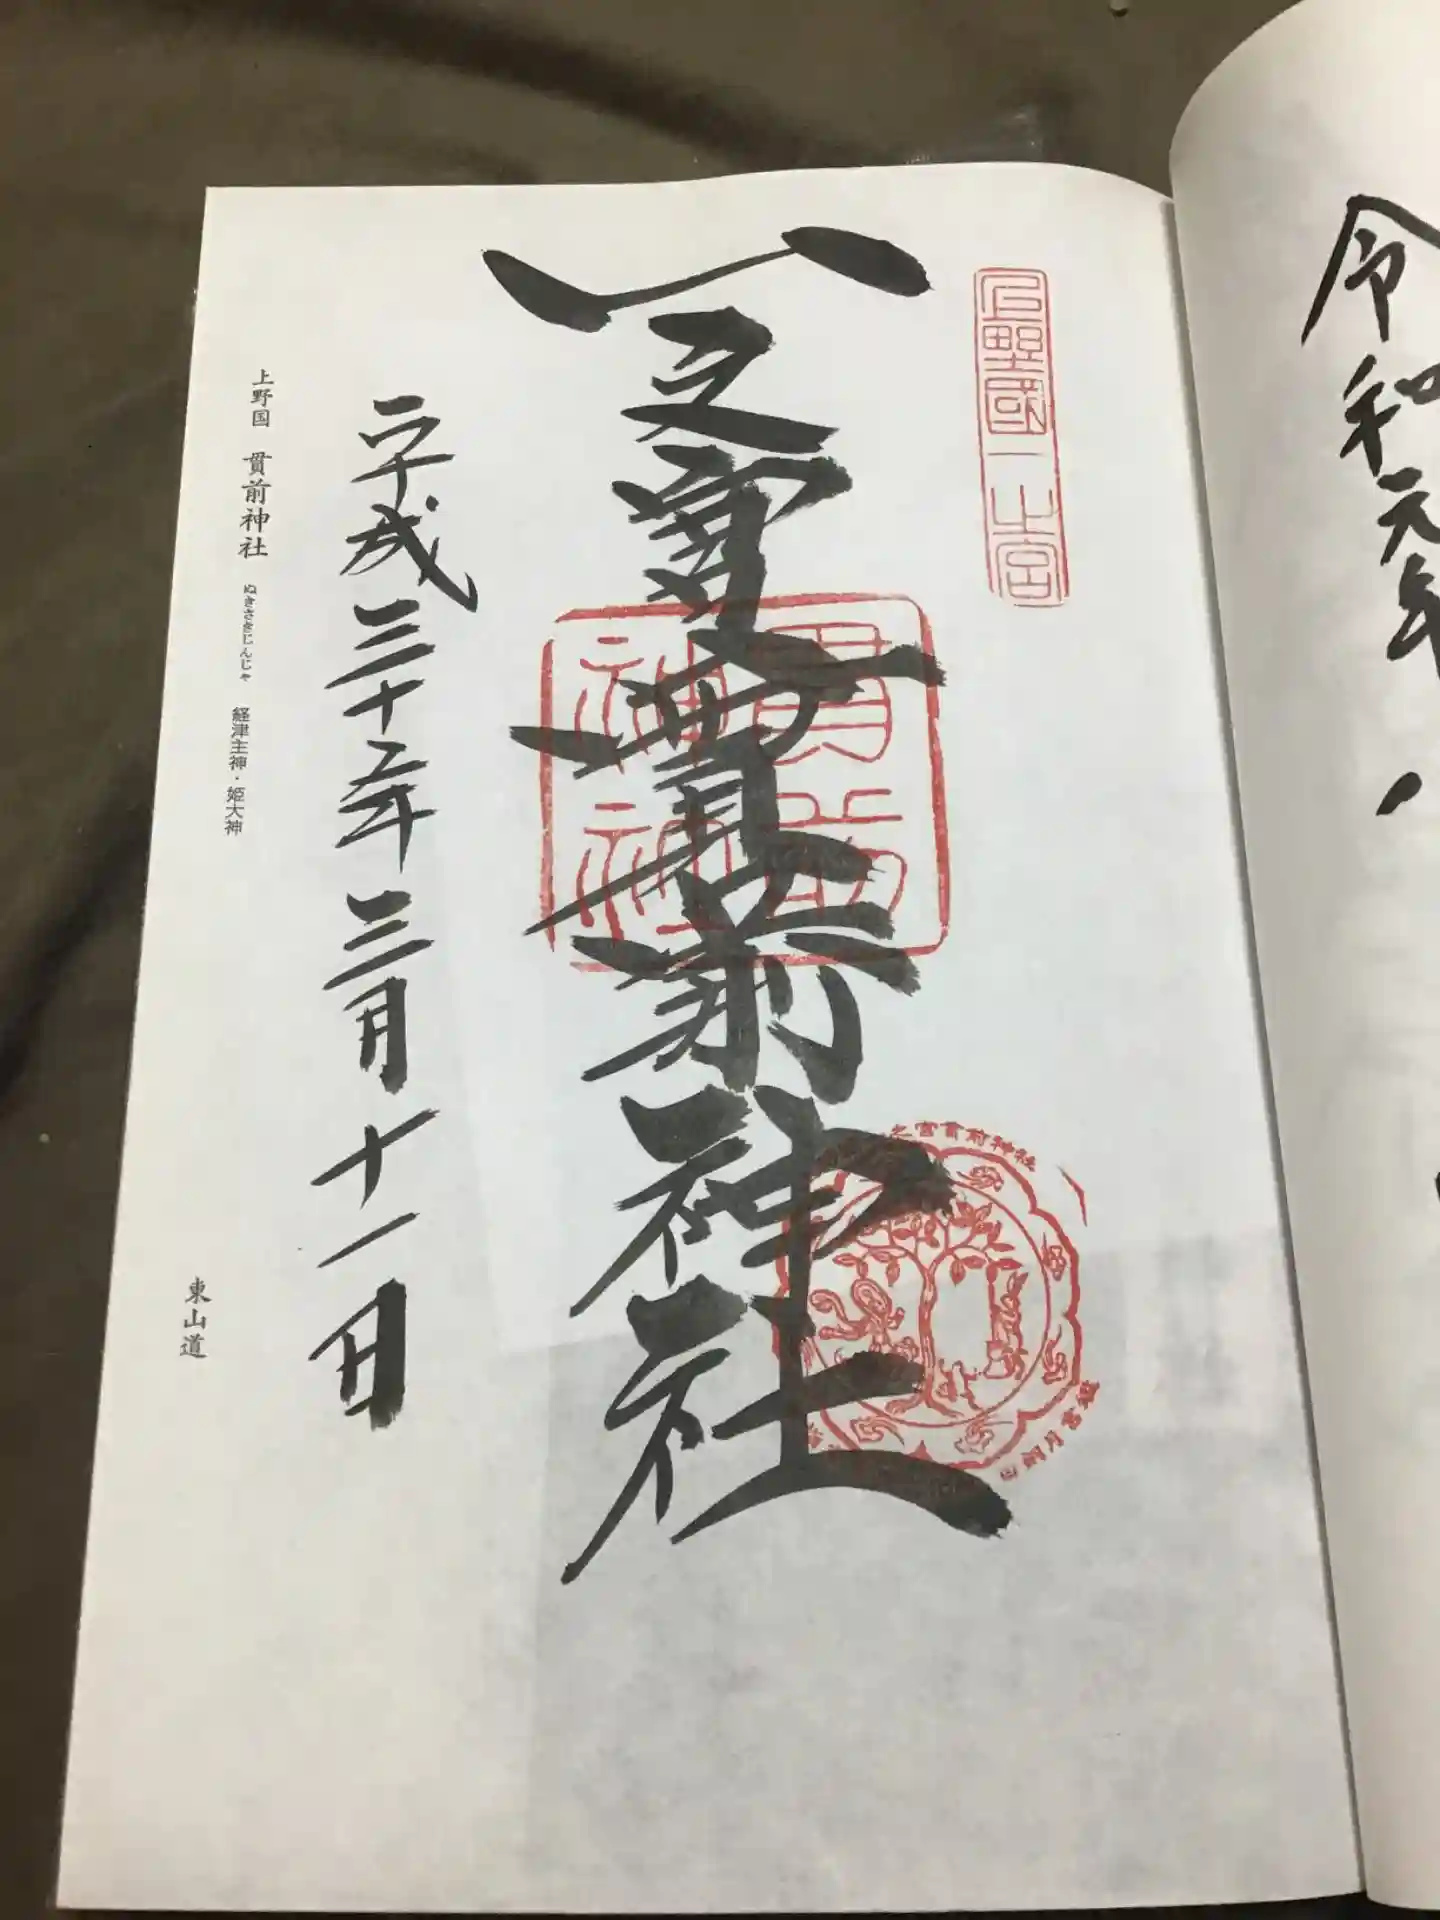 令和元年
上野國一之宮
一之宮貫前神社
貫前神社
之宮貫前神社
平成三十一年三月十一日
上野国 貫前神社 ぬきさきじんじゃ 経津主神・姫大神
東山道